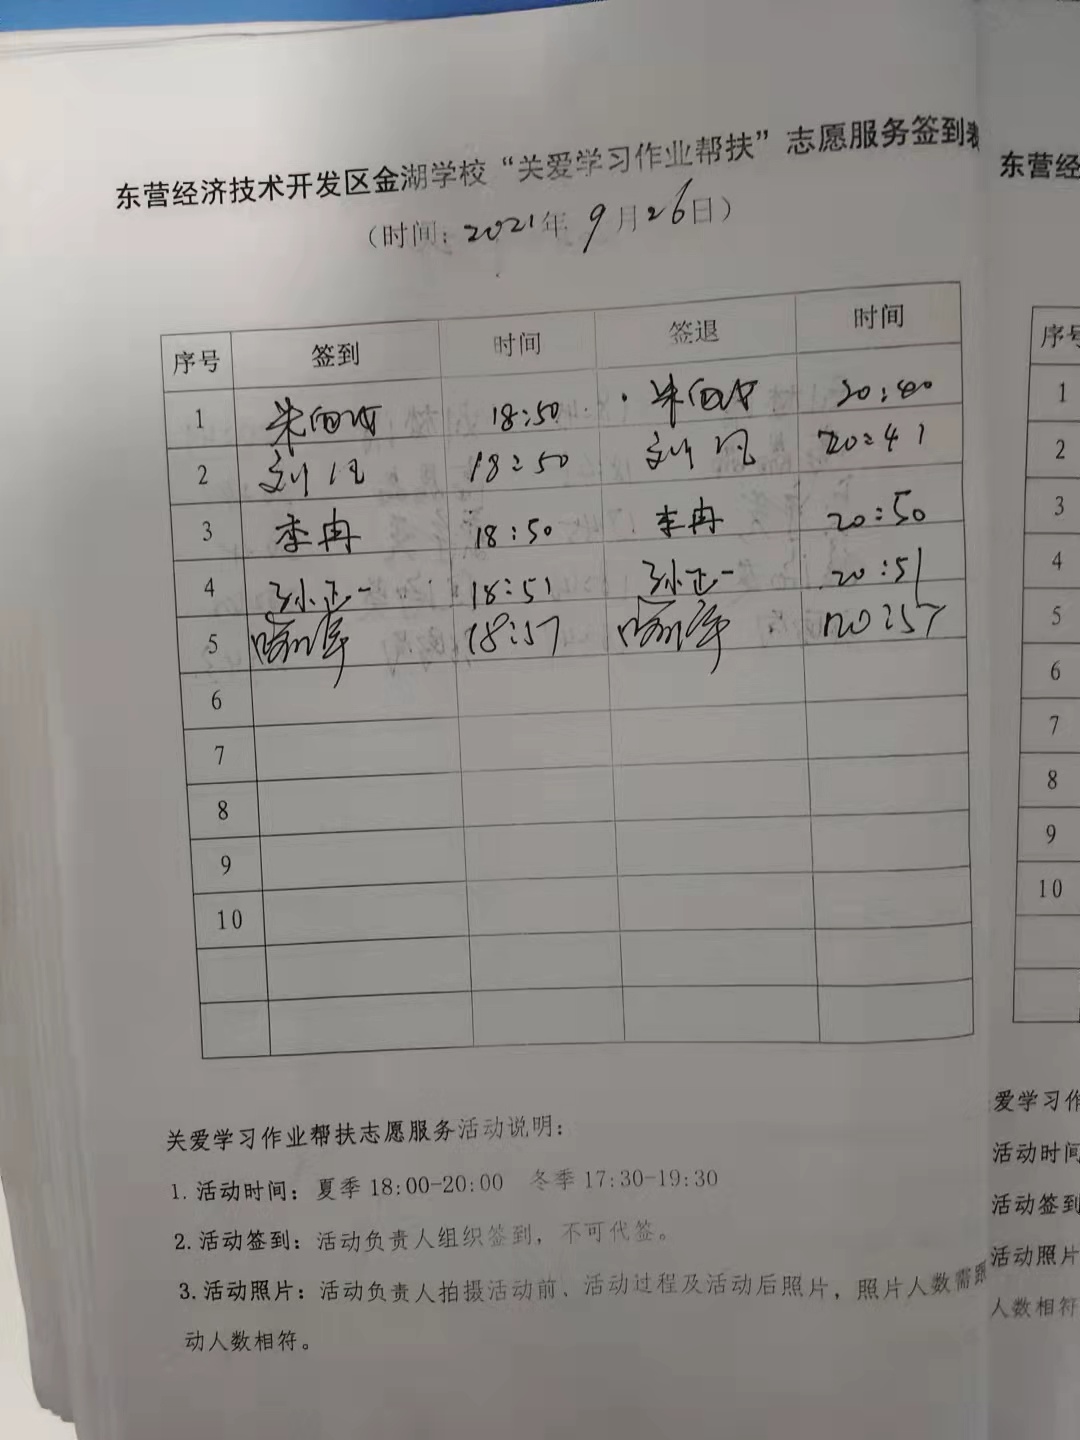 东营经济技术开发区金湖学校“关爱学习作业帮扶”志愿服务签到表
（时间：2021年9月26日）
序号 签到 时间 签退 时间
1 18:50 20:40
2 刘 18:50 刘 20:41
3 李冉 18:50 李冉 20:50
4 孙正一 18:51 孙正一 20:51
5 18:57 20:57
6
7
8
9
10
关爱学习作业帮扶志愿服务活动说明：
1. 活动时间：夏季 18:00-20:00 冬季 17:30-19:30
2. 活动签到：活动负责人组织签到，不可代签。
3. 活动照片：活动负责人拍摄活动前、活动过程及活动后照片，照片人数需跟
动人数相符。
东营经
序号
1
2
3
4
5
6
7
8
9
10
爱学习作
活动时间
活动签到
活动照片
人数相符